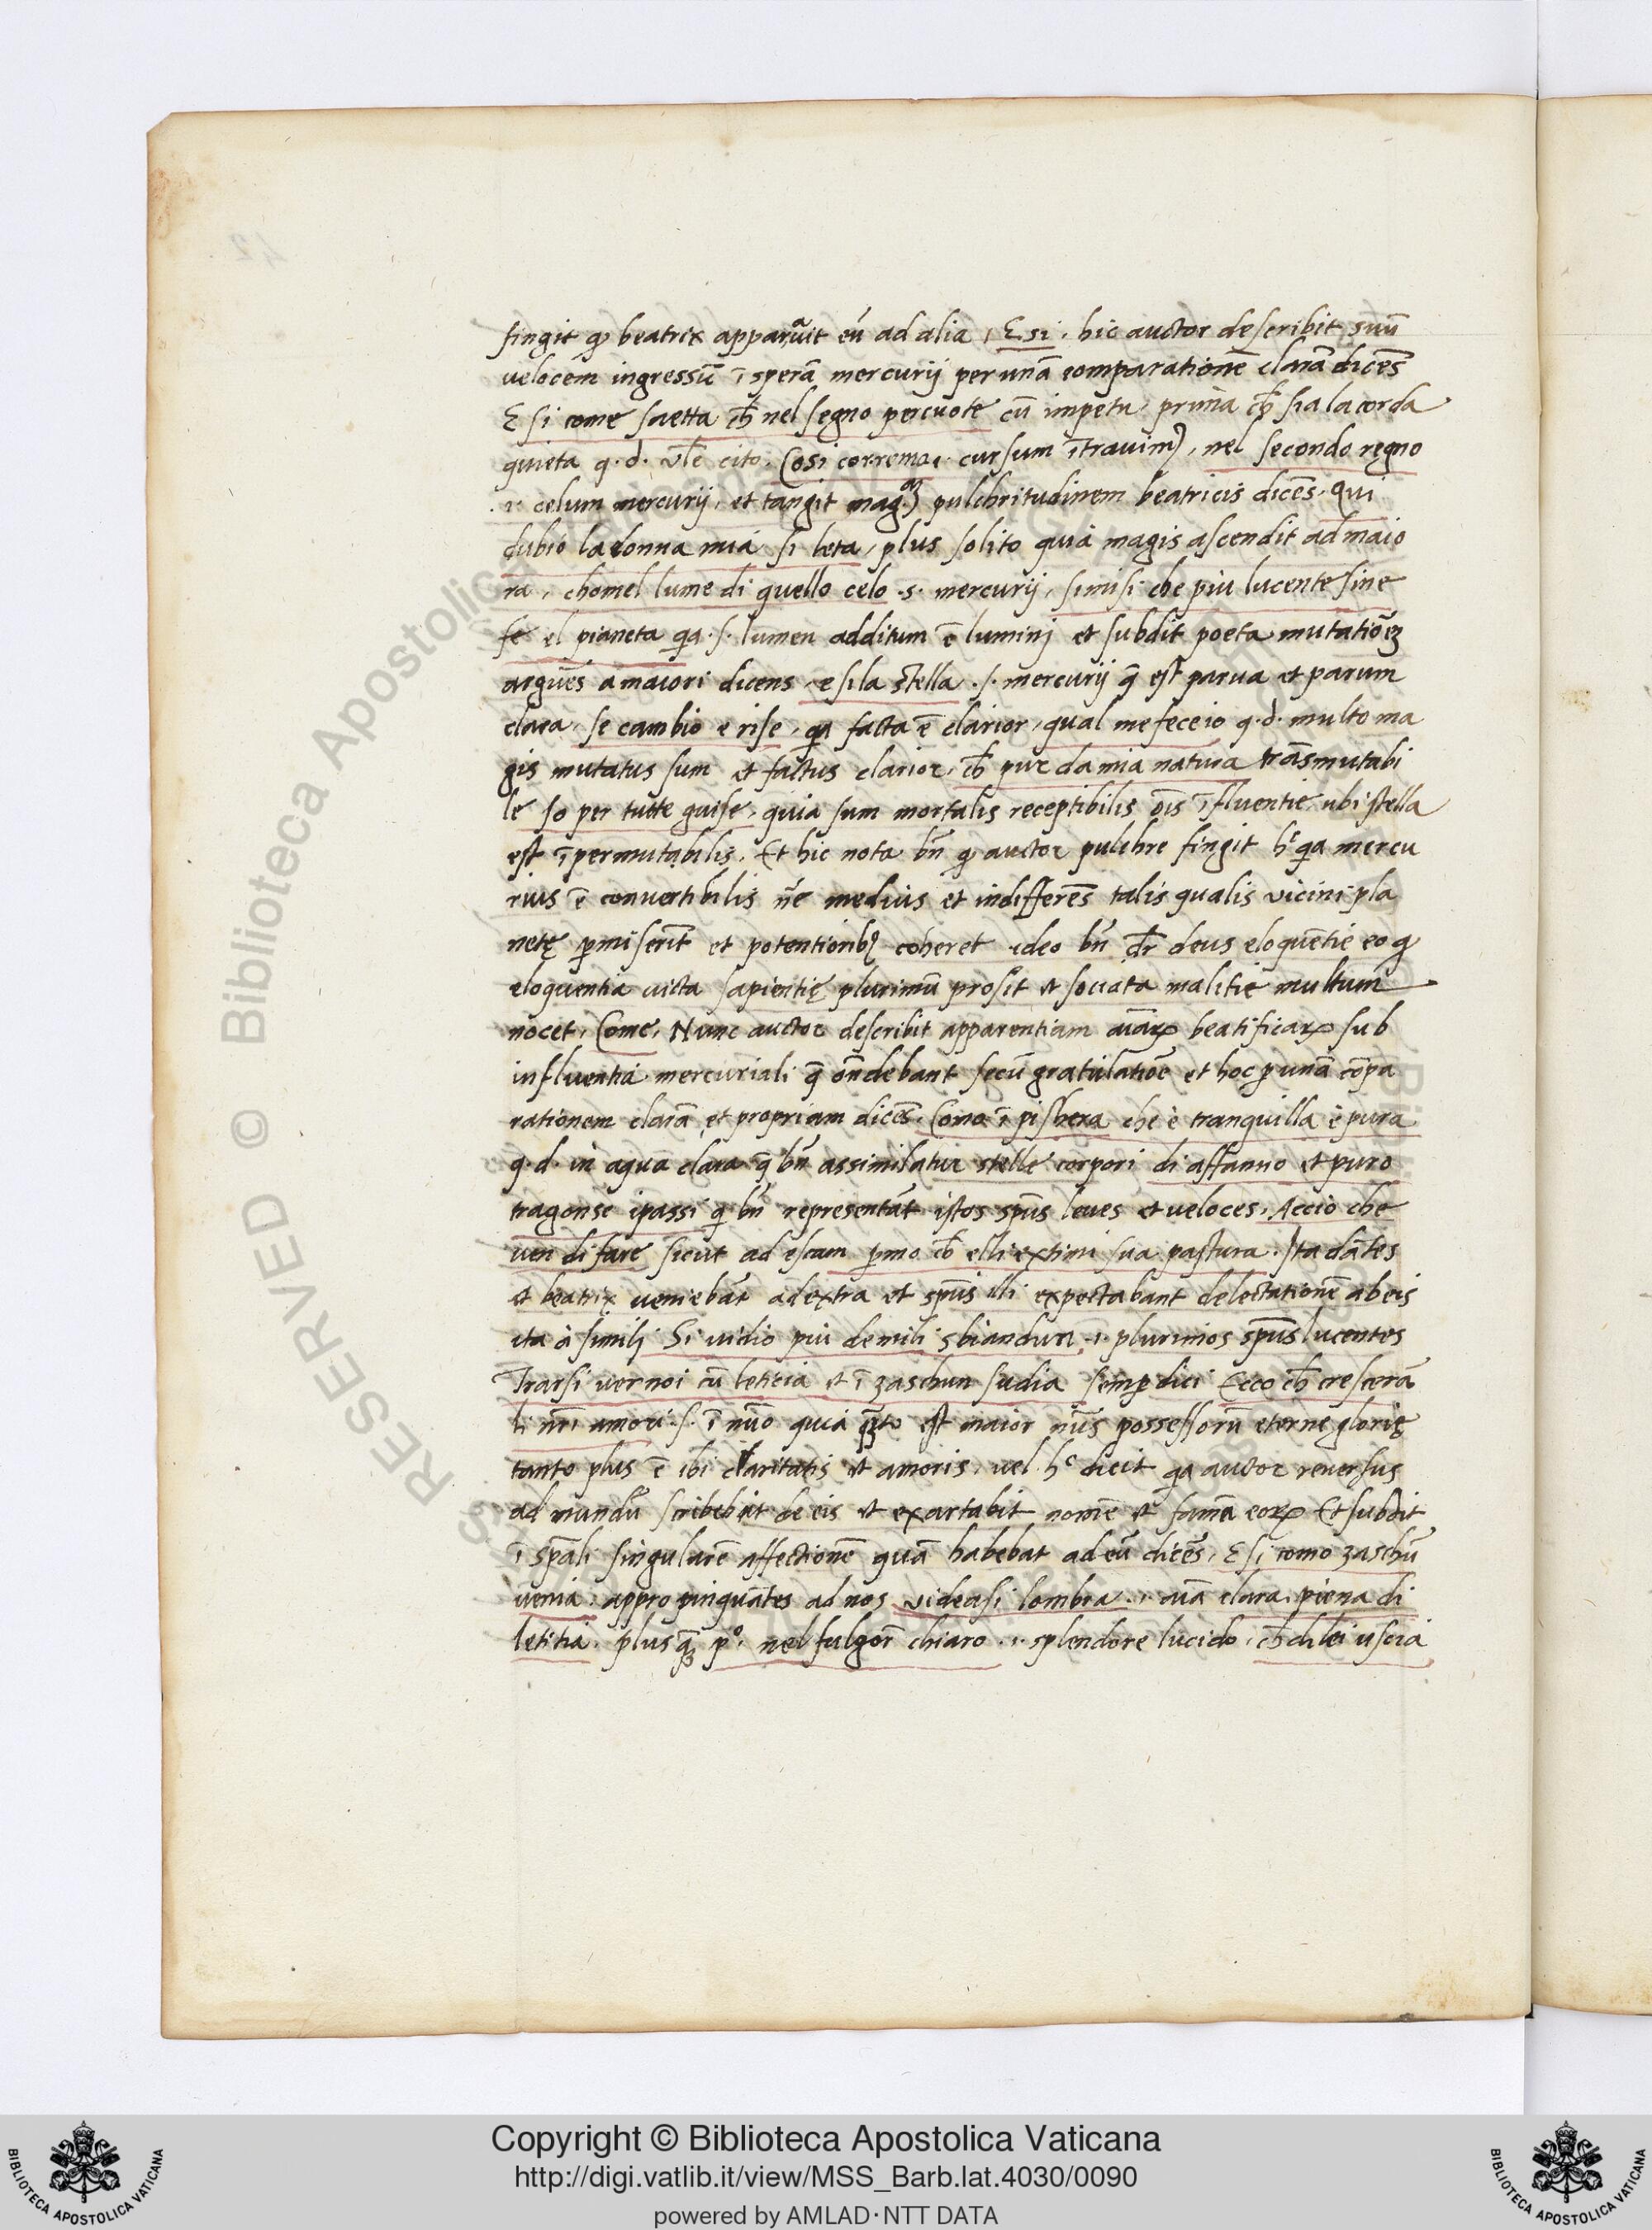 fingit ꝙ beatrix apparuit eũ ad alia, E si. hic auctor describit suũ
velocem ingressũ ĩ sperã mercurij per unã comparationẽ clarã dicẽs
E si come saetta ch̃ nel segno percuote cũ impetu, prima ch̃ sia la corda
quieta q.d. vl̃e cito, Cosi corremo .i. cursum ĩtravimꝰ, nel secondo regno
.i. celum mercurij, et tangit pulchritudinem beatricis dicẽs, Qui
la donna mia si leta, plus solito quia magis ascendit ad maio
ra, chomel lume di quello celo .s. mercurij, simisi che piu lucente sine
fe el pianeta qa .s. lumen additum ẽ lumini et subdit poeta mutatiõez
arguẽs a maiori dicens, e sila stella .s. mercurij q̃ est parva et parum
clara, se cambio e rise, qa facta ẽ clarior, qual me feceio q.d. multo ma
gis mutatus sum et factus clarior, ch̃ pur da mia natura trãsmutabi
le so per tutte guise, quia sum mortalis receptibilis oĩs ĩfluentie, ubi stella
est ĩpermutabilis, Et hic nota bñ ꝙ auctor pulchre fingit hͨ qa mercu
rius ẽ convertibilis medius et indifferẽs talis qualis vicini pla
netę ꝑmiserĩt et potentioribꝰ coheret ideo bñ dr̃ deus eloquẽtie eo ꝙ
eloquentia sapientię plurimũ prosit et sociata malitie multum
nocet, Come, Nunc auctor describit apparentiam aĩaꝝ beatificaꝝ sub
influentia mercuriali q̃ oñdebant secũ gratulatiõe et hoc ꝑ unã cõpa
rationem clarã et propriam dicẽs, Como ĩ pishera che è tranquilla è pura
q.d. in aqua clara q̃ bñ assimilatur stelle corpori di affanno et puro
tragonse ipassi q bñ representãt istos spũs leves et veloces, Accio che
ven di fare sicut ad escam ch̃ elli extimi sua pastura. Ita dãtes
et beatrix veniebãt ad extra et spũs illi expectabant delectationẽ ab eis
ita à simili Si vidio piu demili sbiandun .i. plurimos spũs lucentes
Trarsi ver noi cũ leticia et ĩ zaschun sudia semꝑ dici Ecco ch̃ crescerã
li nr̃i amori .s. ĩ nũo quia est maior nũs possessorũ eterne glorię
tanto plus ẽ ibi claritatis et amoris, vel hͨ dicit qa auctor reversus
ad mundũ scribebit de eis et exartabit nomẽ et famã eoꝝ Et subdit
ĩ spãli singularẽ affectionẽ quã habebat ad eũ dicẽs, E si como zaschũ
venia, appropinquãtes ad nos videasi lombra .i. aĩa clara, piena di
letitia, plus q̃ pº, nel fulgor̃ chiaro .i. splendore lucido, ch̃ di lei uscia
Copyright © Biblioteca Apostolica Vaticana
http://digi.vatlib.it/view/MSS_Barb.lat.4030/0090
powered by AMLAD·NTT DATA